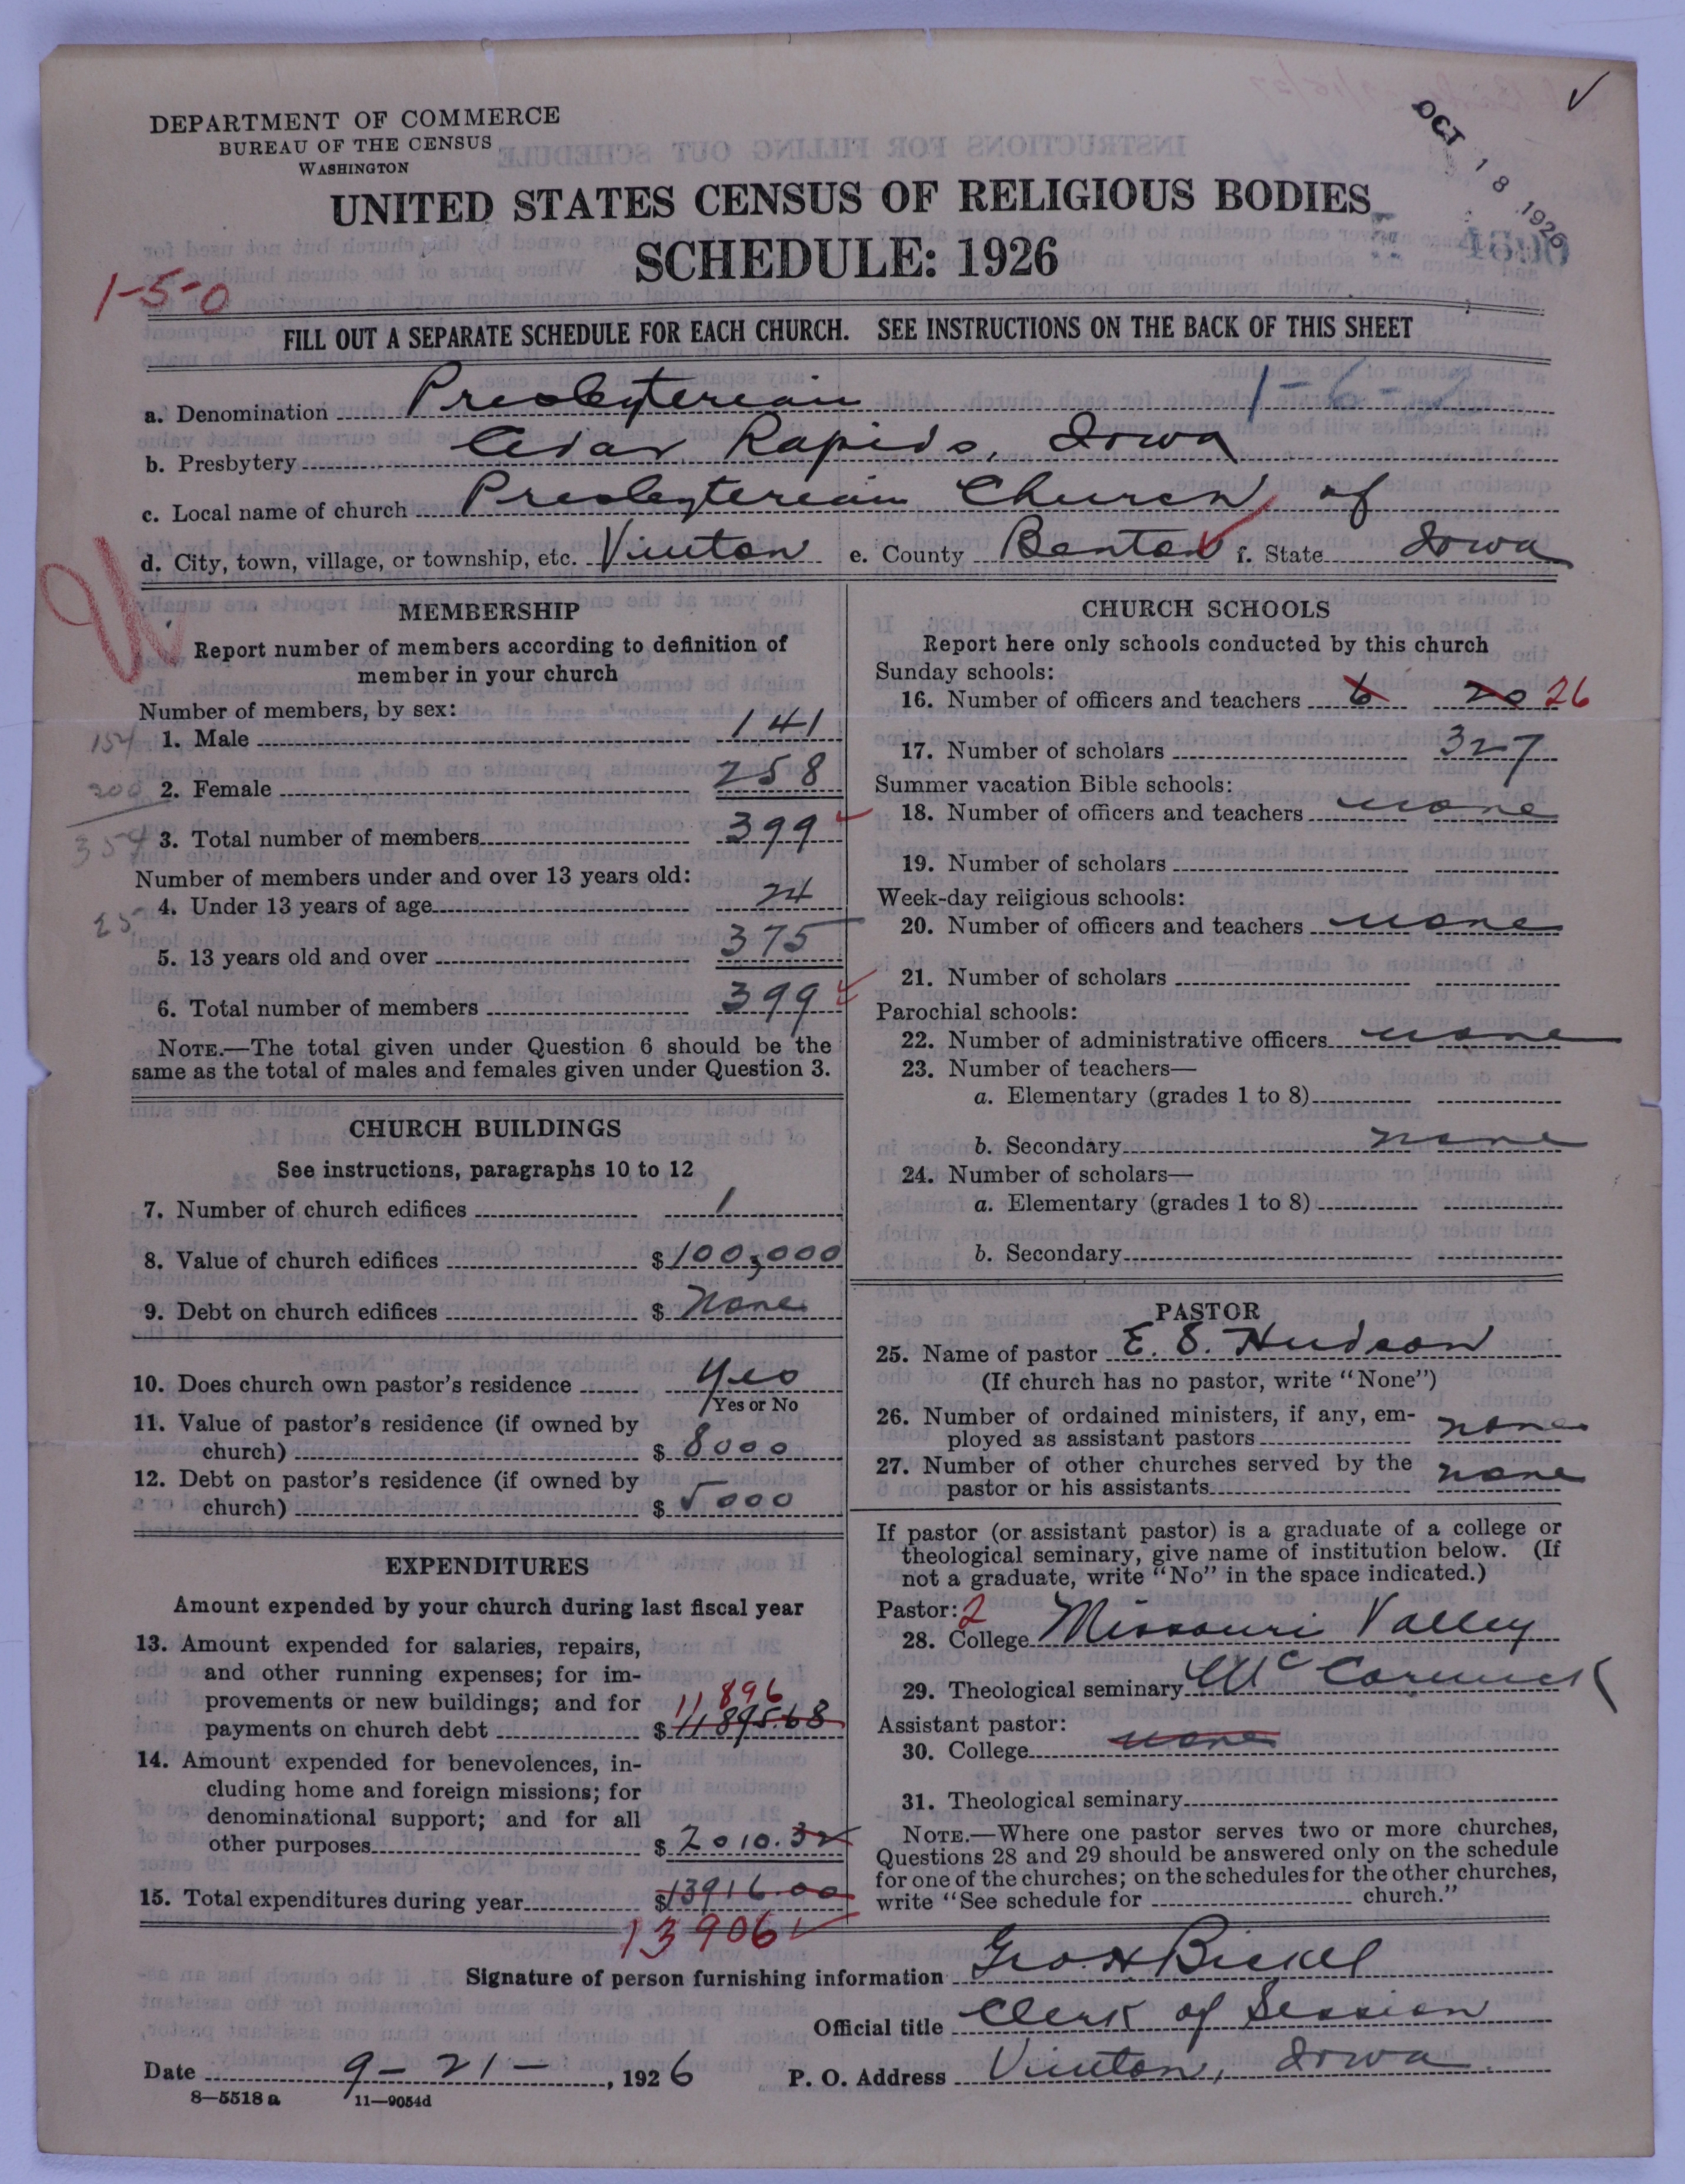 DEPARTMENT OF COMMERCE
BUREAU OF THE CENSUS
WASHINGTON
OCT 18 1926
UNITED STATES CENSUS OF RELIGIOUS BODIES
SCHEDULE: 1926
1-5-0
FILL OUT A SEPARATE SCHEDULE FOR EACH CHURCH. SEE INSTRUCTIONS ON THE BACK OF THIS SHEET
a. Denomination Presbyterian
b. Presbytery Cedar Rapids, Iowa
c. Local name of church Presbyterian Church of
d. City, town, village, or township, etc. Vinton e. County Benton f. State Iowa
MEMBERSHIP
Report number of members according to definition of
member in your church
Number of members, by sex:
154 1. Male 141
200 2. Female 258
354 3. Total number of members 399
Number of members under and over 13 years old:
25 4. Under 13 years of age 24
5. 13 years old and over 375
6. Total number of members 399
NOTE.—The total given under Question 6 should be the
same as the total of males and females given under Question 3.
CHURCH BUILDINGS
See instructions, paragraphs 10 to 12
7. Number of church edifices 1
8. Value of church edifices $ 100,000
9. Debt on church edifices $ None
10. Does church own pastor's residence Yes
Yes or No
11. Value of pastor's residence (if owned by
church) $ 8000
12. Debt on pastor's residence (if owned by
church) $ 5000
EXPENDITURES
Amount expended by your church during last fiscal year
13. Amount expended for salaries, repairs,
and other running expenses; for im-
provements or new buildings; and for 11896
payments on church debt $ 11895.68
14. Amount expended for benevolences, in-
cluding home and foreign missions; for
denominational support; and for all
other purposes $ 2010.32
15. Total expenditures during year $13916.00
13906
CHURCH SCHOOLS
Report here only schools conducted by this church
Sunday schools:
16. Number of officers and teachers 6 20 26
17. Number of scholars 327
Summer vacation Bible schools:
18. Number of officers and teachers none
19. Number of scholars
Week-day religious schools:
20. Number of officers and teachers none
21. Number of scholars
Parochial schools:
22. Number of administrative officers none
23. Number of teachers—
a. Elementary (grades 1 to 8)
b. Secondary none
24. Number of scholars—
a. Elementary (grades 1 to 8)
b. Secondary
PASTOR
25. Name of pastor E. S. Hudson
(If church has no pastor, write "None")
26. Number of ordained ministers, if any, em-
ployed as assistant pastors none
27. Number of other churches served by the
pastor or his assistants none
If pastor (or assistant pastor) is a graduate of a college or
theological seminary, give name of institution below. (If
not a graduate, write "No" in the space indicated.)
Pastor: 2
28. College Missouri Valley
29. Theological seminary McCormick
Assistant pastor:
30. College none
31. Theological seminary
NOTE.—Where one pastor serves two or more churches,
Questions 28 and 29 should be answered only on the schedule
for one of the churches; on the schedules for the other churches,
write "See schedule for church."
Signature of person furnishing information Geo. H Bickel
Official title Clerk of Session
Date 9-21-, 1926 P. O. Address Vinton, Iowa
8—5518 a 11—9054d